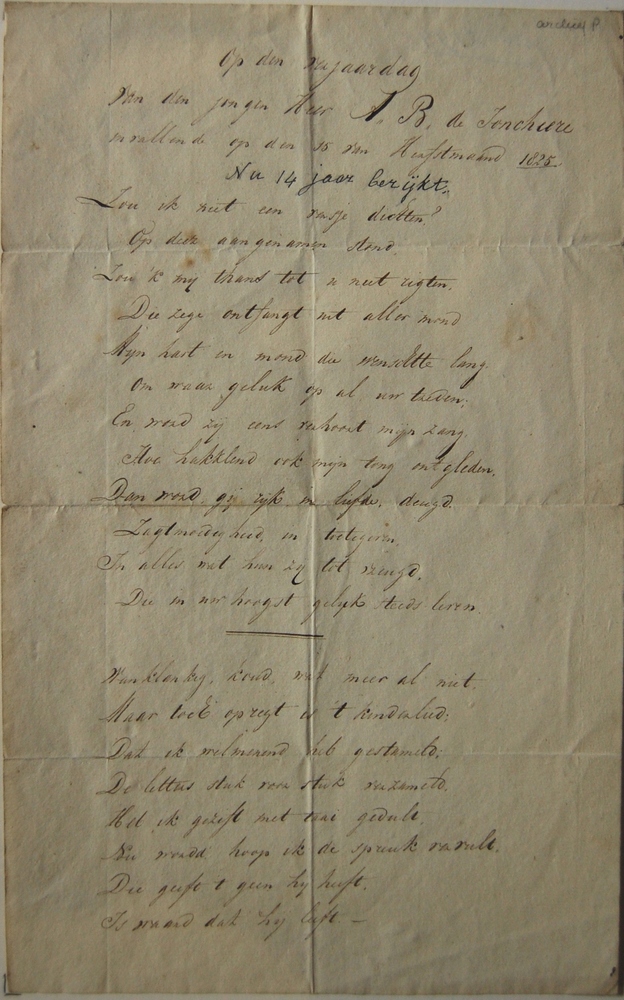 archief P
Op den verjaardag
Van den jongen Heer A. B. de Joncheere
invallende op den 15 van Herfstmaand 1825.
Nu 14 jaar berijkt.
Zou ik niet een versje dichten?
Op deze aangenamen stond.
Zou 'k my thans tot u niet rigten,
Die zege ontfangt uit aller mond
Mijn hart en mond die wenschte lang
Om waar geluk op al uw treden;
En word zij eens verhoort mijn zang
Hoe hakklend ook mijn tong ontgleden.
Dan word gij rijk in liefde, deugd.
Zagtmoedigheid, en toetegeven.
In alles wat hun zy tot vreugd,
Die in uw hoogst geluk steeds leven.
Wanklankig, koud, wat meer al niet
Maar toch opregt is 't kinderlied;
Dat ik welmenend heb gestameld;
De letters stuk voor stuk verzameld.
Heb ik gezift met taai gedult.
Nu wordd hoop ik de spreuk vervult.
Die geeft t geen hy heeft.
Is waard dat hy leeft —